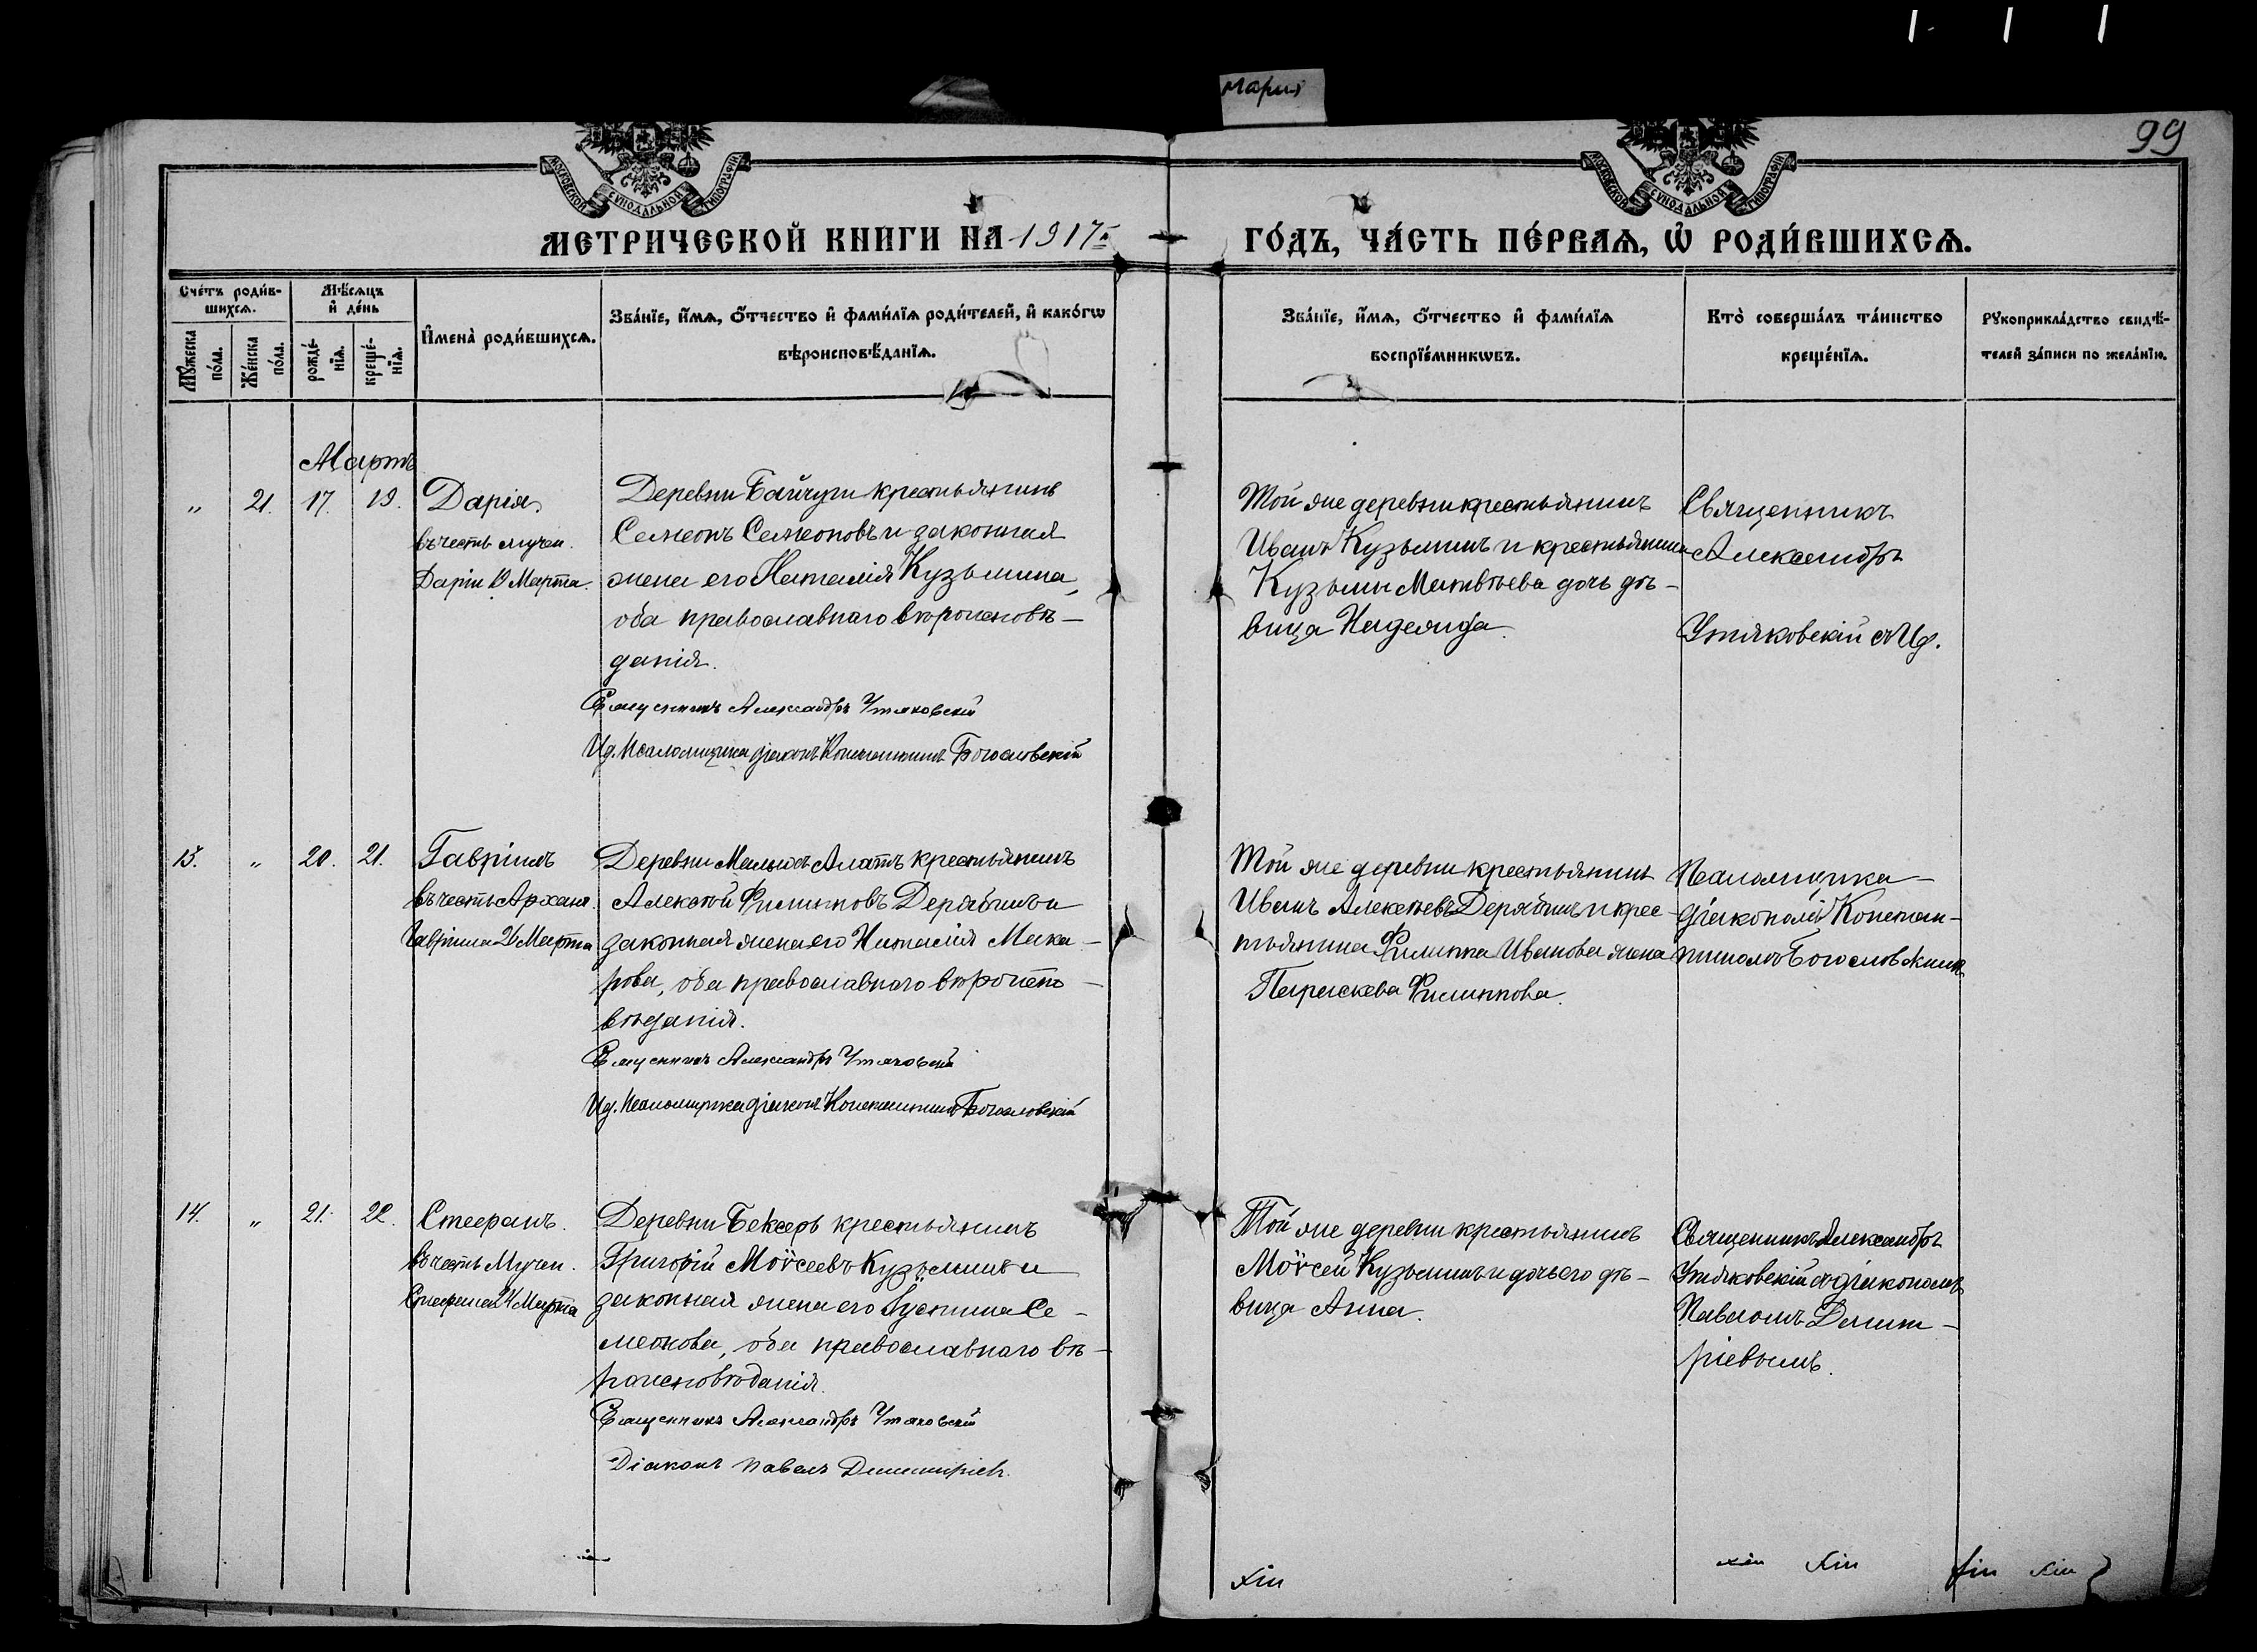 мария
99
МОСКОВСКОЙ СУНОДАЛЬНОЙ ТИПОГРАФІИ
МОСКОВСКОЙ СУНОДАЛЬНОЙ ТИПОГРАФІИ
МЕТРИЧЕСКОЙ КНИГИ НА 1917 г.
ГО́ДЪ, ЧА́СТЬ ПЕ́РВАѦ, Ѽ РОДИ́ВШИХСѦ.
Сче́тъ роди́в-
шихсѧ.
Мꙋ́жеска по́ла.
Же́нска по́ла.
Мѣ́сѧцъ
и҆ де́нь
рожде́-
нїѧ.
креще́-
нїѧ.
И҆мена̀ роди́вшихсѧ.
Зва́нїе, и҆́мѧ, ѻ҆́тчество и҆ фами́лїѧ роди́телей, и҆ како́гѡ
вѣроисповѣ́данїѧ.
Зва́нїе, и҆́мѧ, ѻ҆́тчество и҆ фами́лїѧ
воспрїе́мникѡвъ.
Кто̀ соверша́лъ та́инство
креще́нїѧ.
Рꙋкоприкла́дство свидѣ́-
телей за́писи по жела́нїю.
Мартъ
„ 21. 17. 19.
Дарія
въ честь мучен.
Даріи 19 Марта.
Деревни Байчуги крестьянинъ
Симеонъ Симеоновъ и законная
жена его Наталія Кузьмина,
оба православнаго вѣроисповѣ-
данія.
Священникъ Александръ Утяковскій
Ид. Псаломщика діаконъ Константинъ Богословскій
Той же деревни крестьянинъ
Иванъ Кузьминъ и крестьянина
Кузьмы Матвѣева дочь дѣ-
вица Надежда.
Священникъ
Александръ
Утяковскій съ Ид.
13. „ 20. 21.
Гавріилъ
въ честь Архан.
Гавріила 26 Марта
Деревни Малыхъ Алатъ крестьянинъ
Алексѣй Филипповъ Дерябинъ и
законная жена его Наталія Мака-
рова, оба православнаго вѣроиспо-
вѣданія.
Священникъ Александръ Утяковскій
Ид. Псаломщика діаконъ Константинъ Богословскій
Той же деревни крестьянинъ
Иванъ Алексѣевъ Дерябинъ и крес-
тьянина Филиппа Иванова жена
Параскева Филиппова.
Псаломщика-
діакономъ Констан-
тиномъ Богословскимъ
14. „ 21. 22.
Стефанъ.
въ честь Мучен.
Стефана 24 Марта
Деревни Бексеръ крестьянинъ
Григорій Моѵсеевъ Кузьминъ и
законная жена его Іустина Се-
меонова, оба православнаго вѣ-
роисповѣданія.
Священникъ Александръ Утяковскій
Діаконъ Павелъ Димитріевъ.
Той же деревни крестьянинъ
Моѵсей Кузьминъ и дочь его дѣ-
вица Анна.
Священникъ Александръ
Утяковскій съ діакономъ
Павломъ Димит-
ріевымъ.